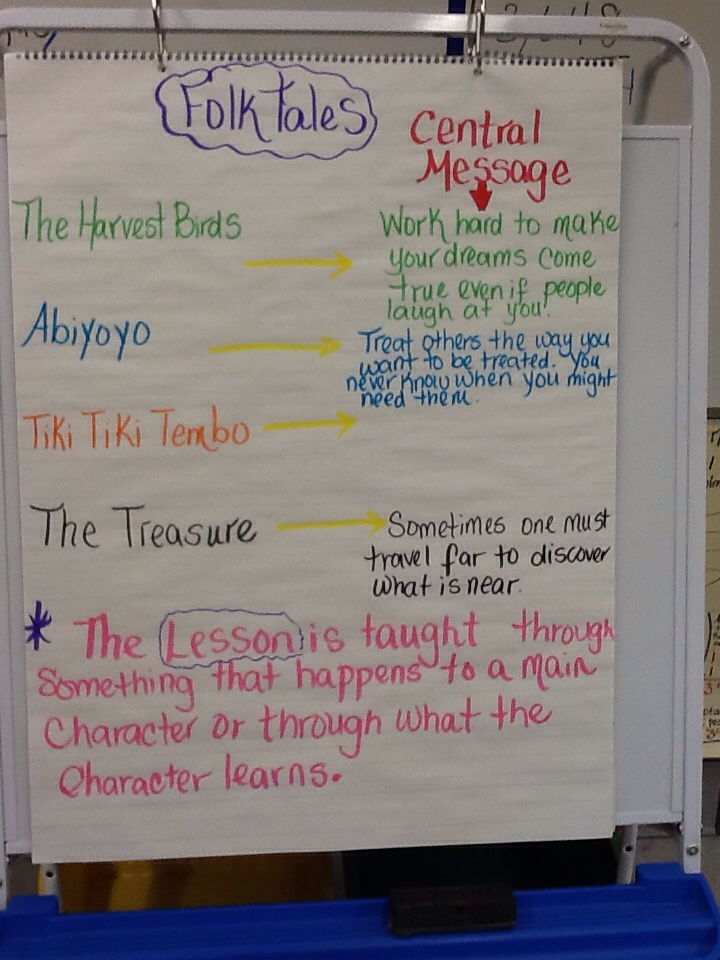 Folktales
Central
Message
The Harvest Birds
Work hard to make
your dreams come
true even if people
laugh at you!
Abiyoyo
Treat others the way you
want to be treated. You
never know when you might
need them.
Tiki Tiki Tembo
The Treasure
Sometimes one must
travel far to discover
what is near.
* The Lesson is taught through
Something that happens to a main
Character or through what the
Character learns.